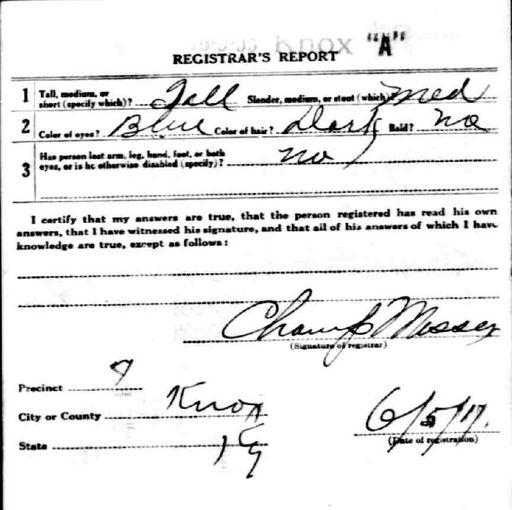 Knox "A"
REGISTRAR'S REPORT
1 Tall, medium, or short (specify which)? Tall Slender, medium, or stout (which)? Med
2 Color of eyes? Blue Color of hair? Dark Bald? No
3 Has person lost arm, leg, hand, foot, or both eyes, or is he otherwise disabled (specify)? no
I certify that my answers are true, that the person registered has read his own
answers, that I have witnessed his signature, and that all of his answers of which I have
knowledge are true, except as follows:
Champ Messer
(Signature of registrar)
Precinct 7
City or County Knox
State Ky
6/5/17.
(Date of registration)